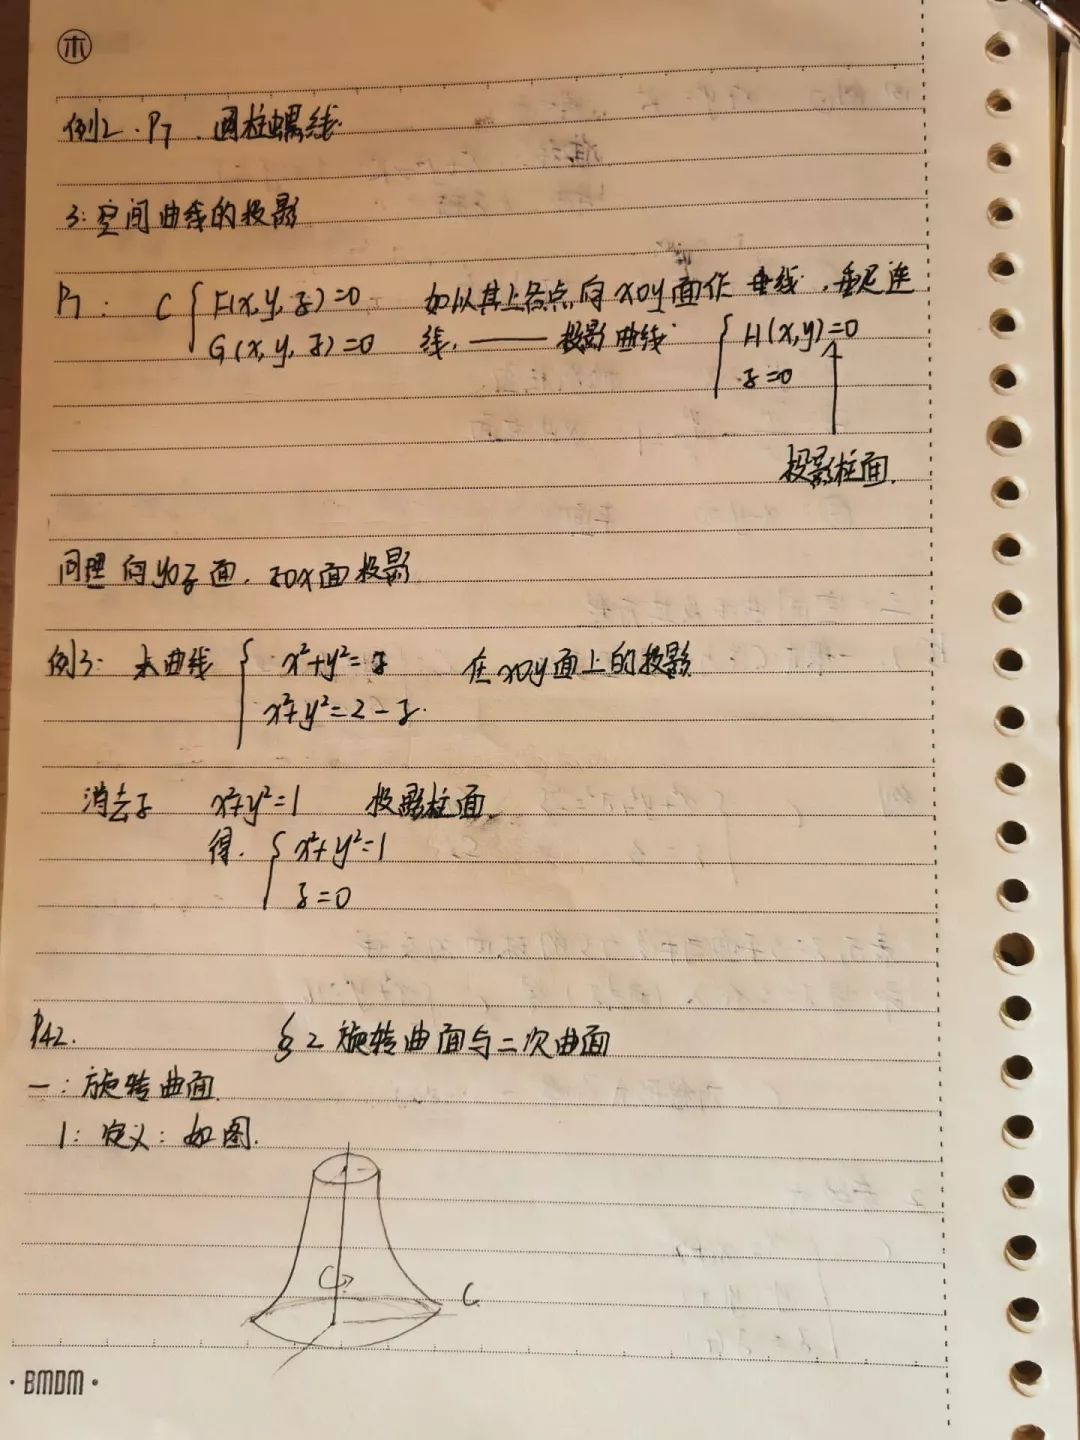 木
例2. P7. 圆柱螺线
3: 空间曲线的投影
P7: C { F(x, y, z)=0 如从其上各点向xoy面作垂线, 垂足连
G(x, y, z)=0 线, —— 投影曲线 { H(x,y)=0
z=0
投影柱面.
同理向yoz面, zox面投影
例3: 求曲线 { x²+y²=z 在xoy面上的投影
x²+y²=2-z.
消去z x²+y²=1 投影柱面.
得. { x²+y²=1
z=0
P42. §2 旋转曲面与二次曲面
一: 旋转曲面
1: 定义: 如图.
C
· BMDM ·